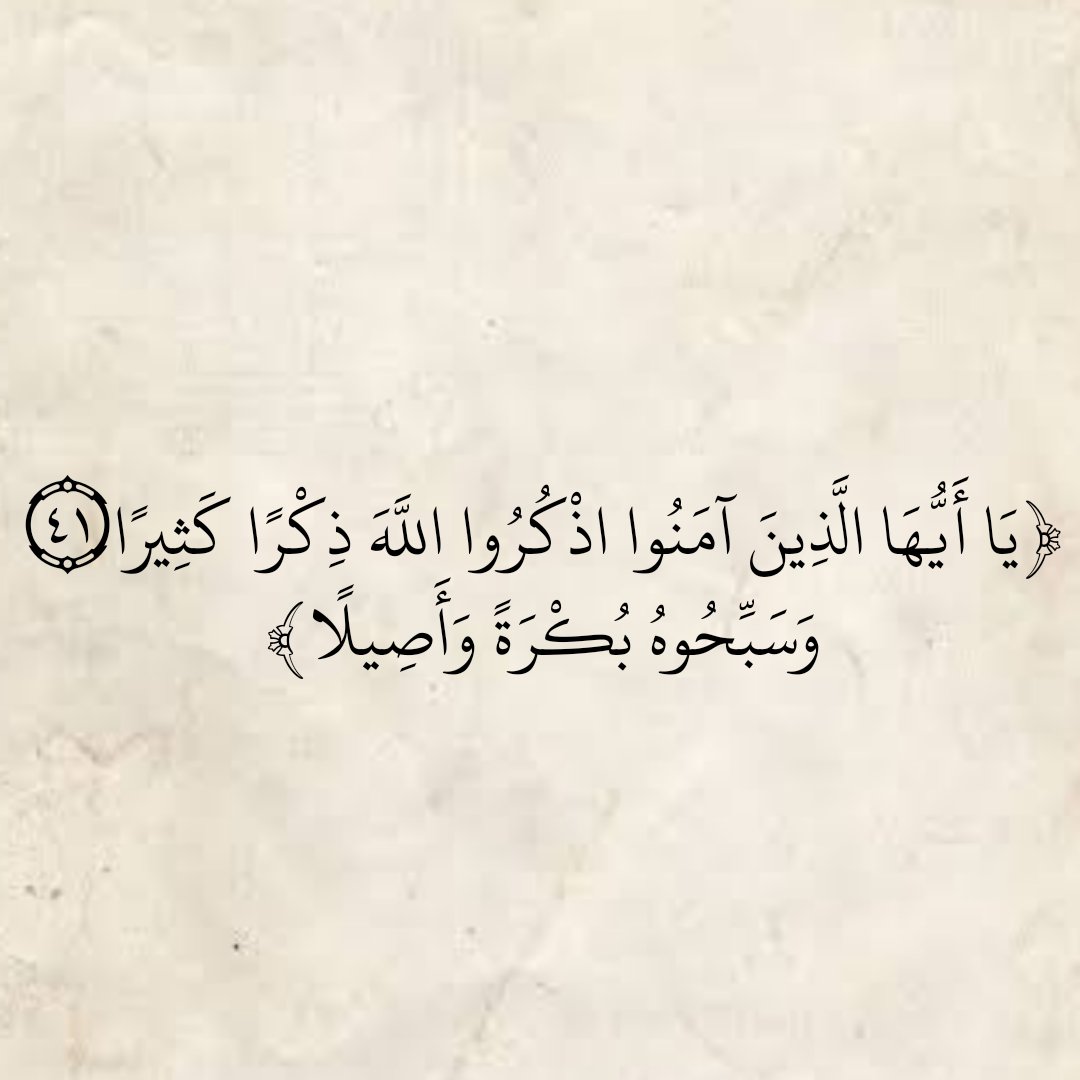 ﴿يَا أَيُّهَا الَّذِينَ آمَنُوا اذْكُرُوا اللَّهَ ذِكْرًا كَثِيرًا ۝٤١
وَسَبِّحُوهُ بُكْرَةً وَأَصِيلًا﴾